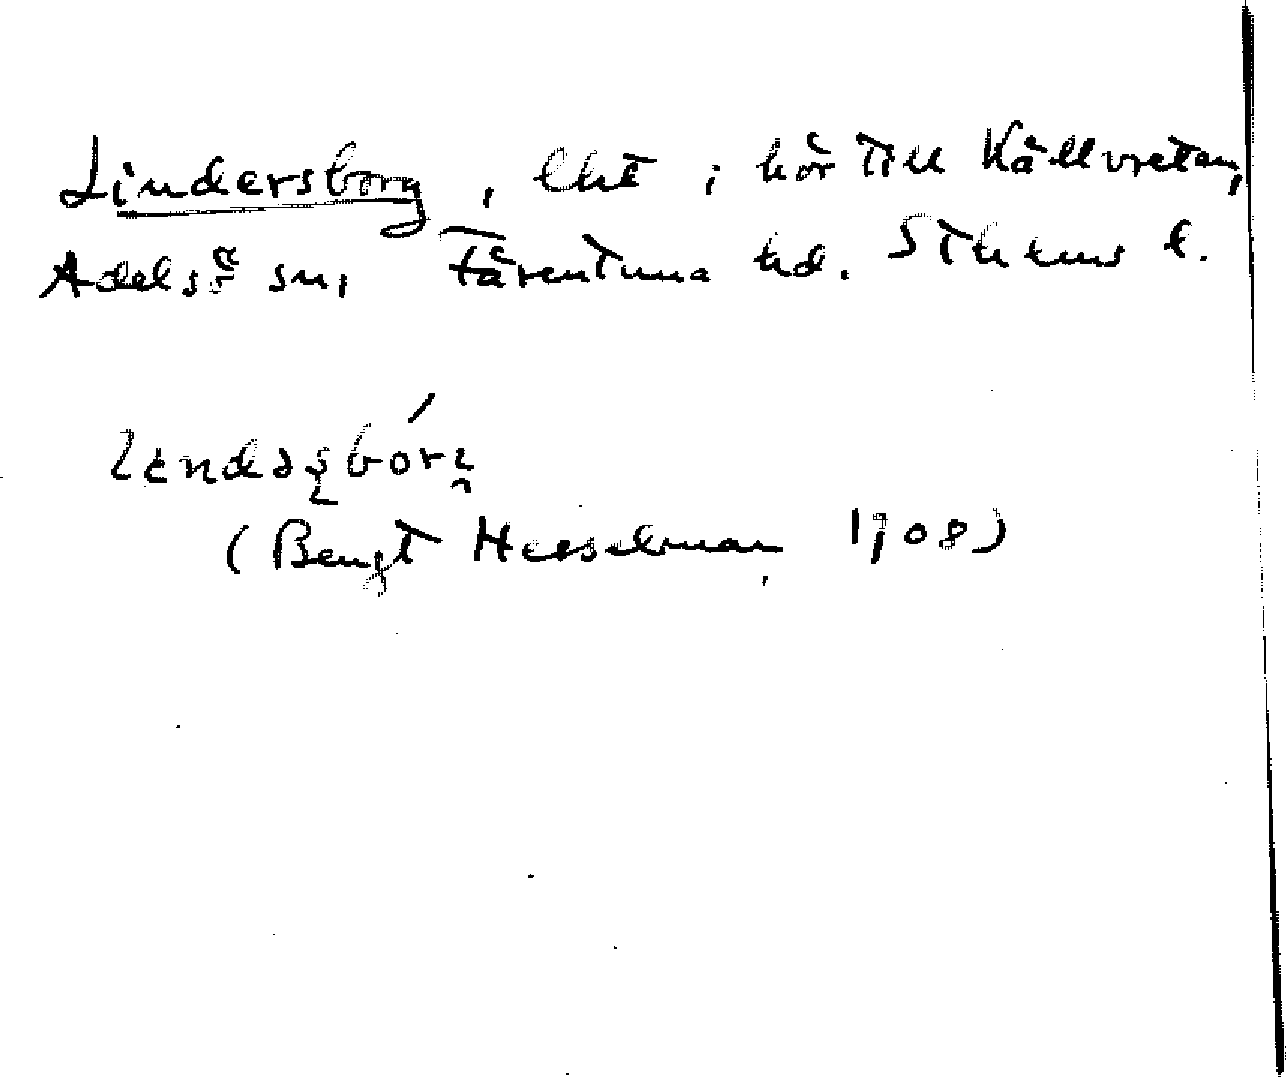 Lindersborg, lht; hör till Källvretan,
Adelsö sn, Färentuna hd. Sthlms l.
(Bengt Hesselman 1908)